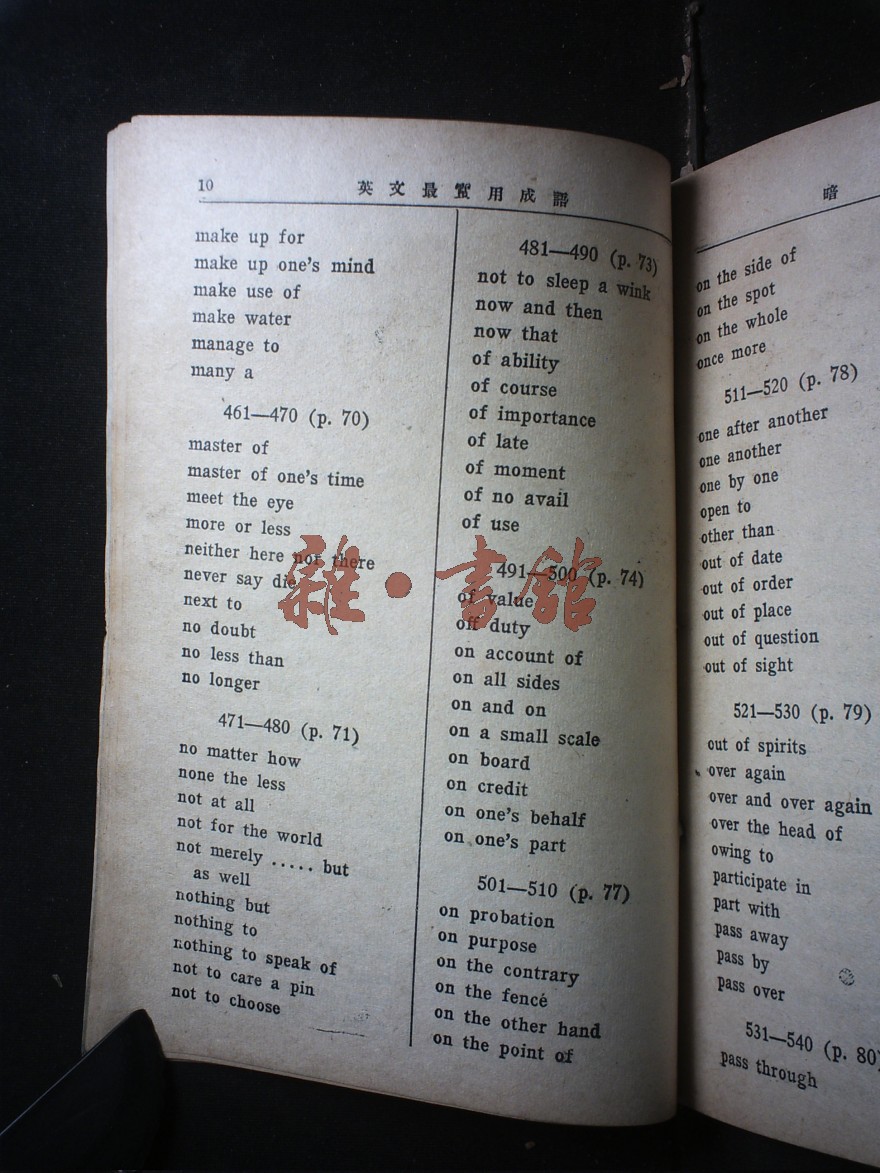 10
英文最實用成語
make up for
make up one's mind
make use of
make water
manage to
many a
461—470 (p. 70)
master of
master of one's time
meet the eye
more or less
neither here nor there
never say die
next to
no doubt
no less than
no longer
471—480 (p. 71)
no matter how
none the less
not at all
not for the world
not merely ..... but
as well
nothing but
nothing to
nothing to speak of
not to care a pin
not to choose
481—490 (p. 73)
not to sleep a wink
now and then
now that
of ability
of course
of importance
of late
of moment
of no avail
of use
491—500 (p. 74)
of value
off duty
on account of
on all sides
on and on
on a small scale
on board
on credit
on one's behalf
on one's part
501—510 (p. 77)
on probation
on purpose
on the contrary
on the fence
on the other hand
on the point of
暗
on the side of
on the spot
on the whole
once more
511—520 (p. 78)
one after another
one another
one by one
open to
other than
out of date
out of order
out of place
out of question
out of sight
521—530 (p. 79)
out of spirits
over again
over and over again
over the head of
owing to
participate in
part with
pass away
pass by
pass over
531—540 (p. 80)
pass through
雜·書館